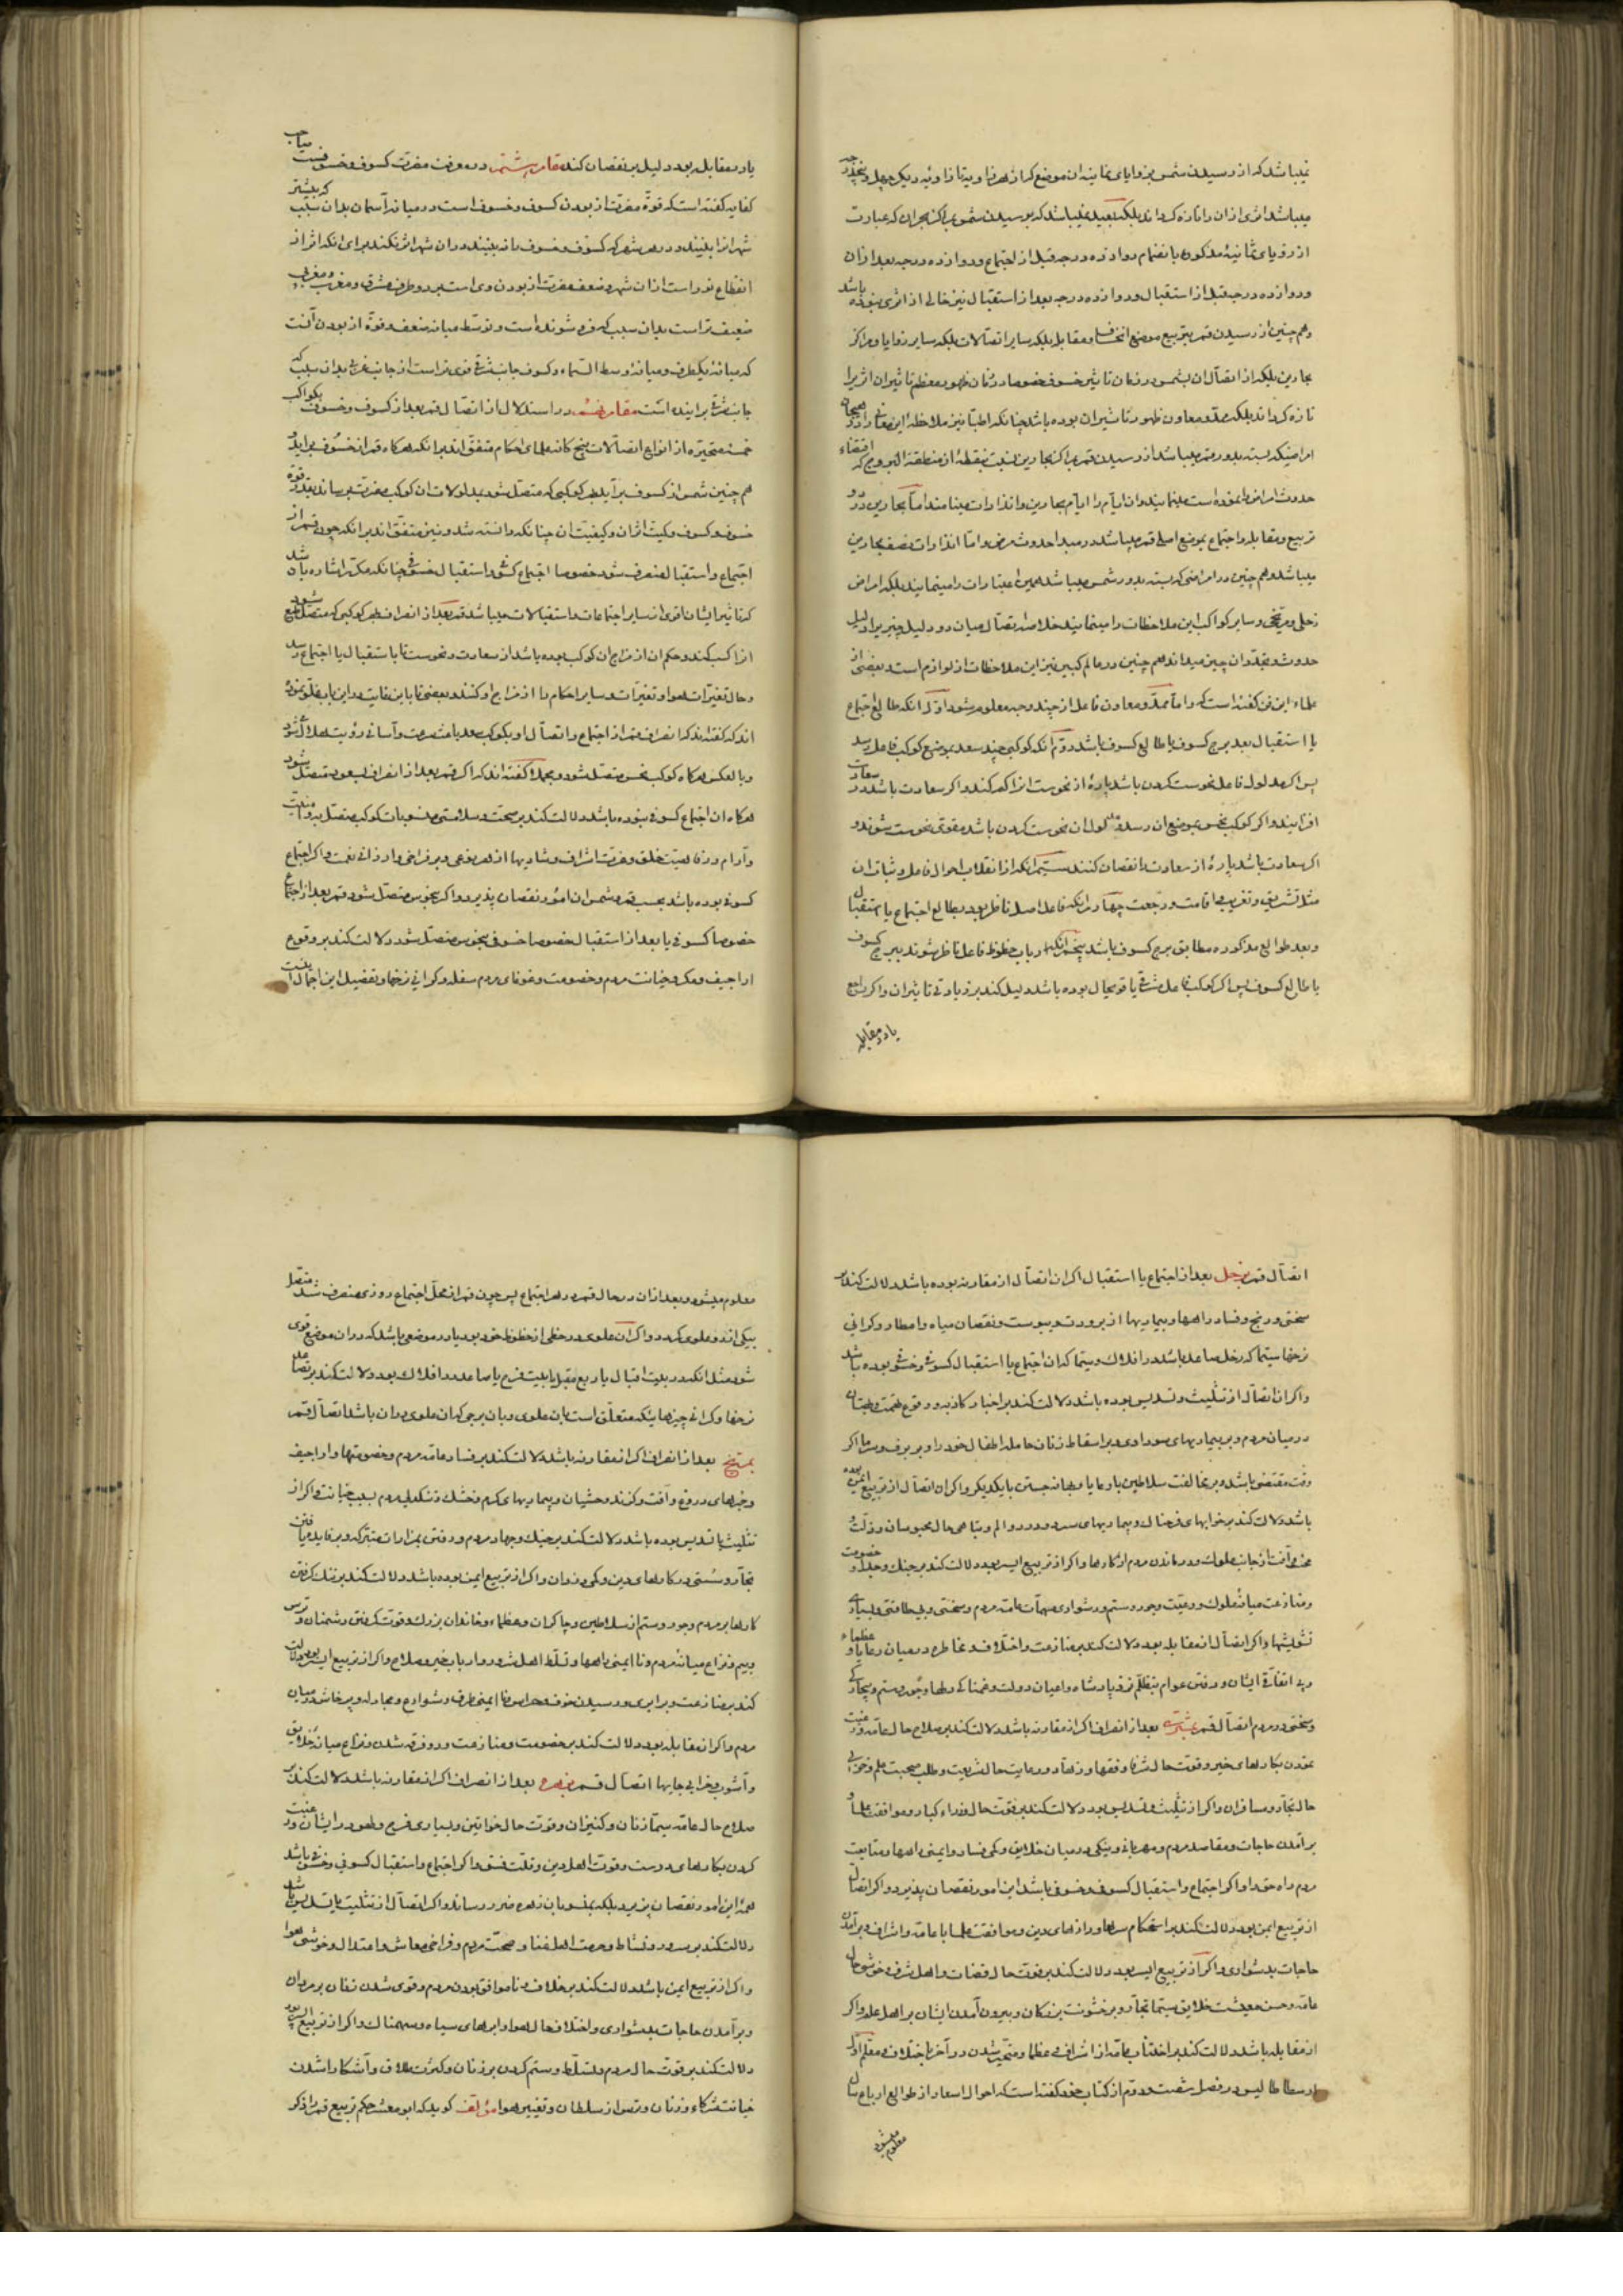 نمیباشد که از رسیدن شمس بزوایای ثمانیه ان موضع که از هر زاویه تا زاویه دیگر چهل و پنجدرجه
میباشد اثری از ان را تازه کرداند بلکه بعید نمیباشد که برسیدن شمس بمراکز بحران که عبارت
از زوایای ثمانیه مذکوره بانضمام دوازده درجه قبل از اجتماع و دوازده درجه بعد از ان
و دوازده درجه قبل از استقبال و دوازده درجه بعد از استقبال نیز خالی از اثری نبوده باشد
و هم چنین از رسیدن قمر بتربیع موضع انخساف و مقابله بلکه سایر اتصالات بلکه سایر زوایا و مراکز
بحارین بلکه از اتصال ان بشمس در زمان تاثیر خسوف خصوصا در زمان ظهور معظم تاثیر ان اثر را
تازه کرداند بلکه ممد و معاون ظهور تاثیر ان بوده باشد چنانکه اطبا نیز ملاحظه این معانی را در
امراضیکه بسته بدور قمر میباشد از رسیدن قمر بمراکز بحارین نسبت بنقطه از منطقة البروج که
حدوث امراض نموده است مینمایند و ان ایام را ایام بحارین و انذارات مینامند اما بحارین در دو
تربیع و مقابله و اجتماع بموضع اصلی قمر میباشد در مبدا حدوث مرض و اما انذارات نصف بحارین
میباشد و هم چنین در امراضی که بسته بدور شمس میباشد همین اعتبارات را مینمایند بلکه امراض
زحلی و مریخی و سایر کواکب این ملاحظات را مینمایند خلاصه اتصال میان دو دلیل چیز بر او دلیل
حدوث و تجدد ان چیز میداند هم چنین در عالم کبیر نیز این ملاحظات از لوازم است و بعضی از
علماء این فن کفته است که و اما ممد و معاون فاعل از چند وجه معلوم میشود اول انکه طالع اجتماع
یا استقبال بعد برج کسوف یا طالع کسوف باشد دوم انکه کوکبی چند سعد بموضع کوکب فاعل رسد
پس اکر مدلول فاعل نحوست کردن باشد پاره از نحوست انرا کم کند و اکر سعادت باشد در سعادت
افزایند و اکر کوکب نحس بموضع ان رسد و مدلول ان نحوست کردن باشد مقوی نحوست شوند و
اکر سعادت باشد پاره از سعادت را نقصان کنند سیم انکه از انقلاب احوال فاعل و ثبات ان
مثل تشریق و تغریب و اقامت و رجعت چهارم انکه فاعل اصل ناظر بود بطالع اجتماع یا استقبال
و بعد طوالع مذکوره مطابق برج کسوف باشد پنجم انکه ارباب حظوظ فاعل ناظر شوند ببرج کسوف
یا طالع کسوف پس اکر کوکب فاعل مشرقی یا قویحال بوده باشد دلیل کند بر زیادتی تاثیر ان و اکر راجع
یا در مقابله
یا در مقابله بود دلیل بر نقصان کند مقام ششم در معرفت مضرت کسوف و خسوف است
کفایه کفته است که قوة مضرت از بودن کسوف و خسوف است در میانه آسمان بدان سبب که بیشتر
شهر انرا بینند و در هر شهر که کسوف و خسوف را نه بینند در ان شهر اثر نکند برای انکه اثر از
انقطاع نور است از ان شهر و ضعف مضرت از بودن وی است بر دو طرف مشرق و مغرب و مغربی
ضعیف تر است بدان سبب که فرو شونده است و توسط میانه ضعف و قوة از بودن آنست
که میانه یکطرف و میانه وسط السماء و کسوف جانب شرقی قوی تر است از جانب غربی بدان سبب که
جانب شرقی براینده است مقام هفتم در استدلال از اتصال قمر بعد از کسوف و خسوف بکواکب
خمسه متحیره از انواع اتصالات پنج کانه علمای احکام متفق اند بر انکه هر کاه قمر از خسوف براید و
هم چنین شمس از کسوف برآید بهر کوکبی که متصل شود بمدلولات ان کوکب مضرت برساند بقدر قوة
خسوف و کسوف و کمیت اثر ان و کیفیت ان چنانکه دانسته شد و نیز متفق اند بر انکه چون قمر از
اجتماع و استقبال منصرف شود خصوصا اجتماع کسوفی و استقبال خسوفی چنانکه مکرر اشاره بان شد
که تاثیر ایشان اقوی از سایر اجتماعات و استقبالات میباشد قمر بعد از انصراف بهر کوکبی که متصل شود طبع
انرا کسب کند و حکم ان از مزاج ان کوکب بوده باشد از سعادت و نحوست تا باستقبال یا اجتماع رسد
و حال تغیرات هوا و تغیرات و سایر احکام را از مزاج او کنند و بعضی تا باین غایت در این باب غلو نموده
اند که کفته اند که انصراف قمر از اجتماع و اتصال او بکوکب سعد باعث سرعت و آسانی رؤیت هلال شود
و بالعکس هر کاه کوکب نحس متصل شود و مجملا کفته اند که اکر قمر بعد از انصراف بسعود متصل شود
هر کاه ان اجتماع کسوفی نبوده باشد دلالت کند بر صحت و سلامتی منسوبات کوکب متصل به و امنیت
و آرام و رفاهیت خلق و عزت اشراف و شادیها از هر نوعی و بر فراخی و ارزانی نعمت و اکر اجتماع
کسوفی بوده باشد بحسب قمر و شمس ان امور نقصان پذیرد و اکر بنحوس متصل شود قمر بعد از اجتماع
خصوصا کسوفی یا بعد از استقبال خصوصا خسوفی بنحوس متصل شود دلالت کند بر وقوع
اراجیف و مکر و خیانت مردم و خصومت و غوغای مردم سفله و کرانی نرخها و تفصیل این اجمال
اتصال قمر بزحل بعد از اجتماع یا استقبال اکر ان اتصال از مقارنه بوده باشد دلالت کند بر
سختی و رنج و فساد راهها و بیماریها از برودت و یبوست و نقصان میاه و امطار و کرانی
نرخها سیما که زحل صاعد باشد در افلاک و سیما که ان اجتماع یا استقبال کسوفی و خسوفی بوده باشد
و اکر ان اتصال از تثلیث و تسدیس بوده باشد دلالت کند بر اخبار کاذبه و وقوع تهمت و بهتان
در میان مردم و بر بیماریهای سوداوی و بر اسقاط زنان حامله اطفال خود را و بر برف و سرما اکر
وقت مقتضی باشد و بر مخالفت سلاطین با رعایا و بهانه جستن با یکدیکر و اکر ان اتصال از تربیع ایمن بوده
باشد دلالت کند بر خوابهای هولناک و بیماریهای سرد و درد و الم و تباهی حال محبوسان و زلت و
آفت از جانب ملوک و درماندن مردم از کارها و اکر از تربیع ایسر بود دلالت کند بر جنک و جدل و خصومت
و منازعت میانه ملوک و رعیت و جور و ستم و دشواری مهمات عامه مردم و سختی و بی طاقتی و بسیاری
تشویشها و اکر اتصال از مقابله بود دلالت کند بر منازعت و اختلاف و مخاطره در میان رعایا و عظماء
و بد اتفاقی ایشان و رفتن عوام بتظلم نزد پادشاه و اعیان دولت و غمناکی دلها و جور و ستم و بیچارکی
و سختی در مردم اتصال قمر بمشتری بعد از انصراف اکر از مقارنه باشد دلالت کند بر صلاح حال عامه و رغبت
نمودن بکارهای خیر و قوت حال شرفا و فقها و زهاد و رعایت حال شریعت و طلب صحبت علم و خوبی
حال تجار و مسافران و اکر از تثلیث و تسدیس بود دلالت کند بر قوت حال وزراء کبار و موافقت علما و
برآمدن حاجات و مقاصد مردم و مهربانی و نیکی در میان خلایق و کمی فساد و ایمنی راهها و متابعت
مردم راه حق را و اکر اجتماع و استقبال کسوفی و خسوفی باشد این امور نقصان پذیرد و اکر اتصال
از تربیع ایمن بود دلالت کند بر استحکام سرها و رازهای دین و موافقت علما با عامه و اشراف و برآمدن
حاجات بدشواری و اکر از تربیع ایسر بود دلالت کند بر قوت حال قضات و اهل شرف و خوشی حال
عامه و حسن معیشت خلایق سیما تجار و بر خشونت بزرکان و بیرون آمدن ایشان بر اهل علم و اکر
از مقابله باشد دلالت کند بر اجتناب عامه از اشراف و عظما و متحیر شدن در آخر
ارسطاطالیس در فصل شصت و دوم از کتاب خود کفته است که احوال اسعار از طوالع ارباع سال
معلوم میشود
معلوم میشود و بعد از ان در حال قمر در هر اجتماع پس چون قمر از محل اجتماع روزی منصرف شد متصل
بیکی از دو علوی کردد و اکر ان علوی در حظی از حظوظ خود بود یا در موضعی باشد که در ان موضع قوی
شود مثل انکه در بیت اقبال یا ربع مقبل یا بیت فرح یا صاعد در افلاک بود دلالت کند بر تصاعد
نرخها و کرانی چیزهاییکه متعلق است بان علوی و بان برجی که ان علوی در ان باشد اتصال قمر
بمریخ بعد از انصراف اکر از مقارنه باشد دلالت کند بر فساد عامه مردم و خصومتها و اراجیف
و خبرهای دروغ و آفت و کزند وحشیان و بیماریهای کرم و خشک و تنکدلی مردم بسبب خیانت و اکر از
تثلیث یا تسدیس بوده باشد دلالت کند بر جنک و جهاد مردم و رفتن بمزارات متبرکه و بر فایده یافتن
تجار و سستی در کارهای دین و کمی دزدان و اکر از تربیع ایمن بوده باشد دلالت کند بر تنک کرفتن
کارها بر مردم و جور و ستم از سلاطین و چاکران و عظما و خاندان بزرک و قوت کرفتن دشمنان و ترس
و بیم و نزاع میانه مردم و نا ایمنی راهها و تسلط اهل شر و ارباب خیر و صلاح و اکر از تربیع ایسر بود دلالت
کند بر منازعت و برابری و رسیدن خوف و هراس و نا ایمنی طرق و شوارع و مجادله و پرخاش در میان
مردم و اکر از مقابله بود دلالت کند بر خصومت و منازعت و دو فرقه شدن و نزاع میانه خلایق
و آشوب و خرابی جایها اتصال قمر بزهره بعد از انصراف اکر از مقارنه باشد دلالت کند بر
صلاح حال عامه سیما زنان و کنیزان و قوت حال خواتین و بسیاری فرح و لهو در ایشان و رغبت
کردن بکارهای درست و قوت اهل دین و قلت فسق و اکر اجتماع و استقبال کسوفی و خسوفی باشد
همه این امور نقصان پذیرد بلکه بمنسوبان زهره ضرر رساند و اکر اتصال از تثلیث یا تسدیس باشد
دلالت کند بر سرور و نشاط و حرمت اهل غنا و صحت مردم و فراخی معاش و اعتدال و خوشی هوا
و اکر از تربیع ایمن باشد دلالت کند بر خلاف و ناموافق بودن مردم و قوی شدن زنان بر مردان
و برآمدن حاجات بدشواری و اختلاف حال هوا و ابرهای سیاه و سهمناک و اکر از تربیع ایسر بود
دلالت کند بر قوت حال مردم و تسلط و ستم کردن بر زنان و کثرت طلاق و آشکارا شدن
خیانت شرکاء و زنان و ترس از سلطان و تغییر هوا مؤلف کوید که ابو معشر حکم تربیع قمر را ذکر